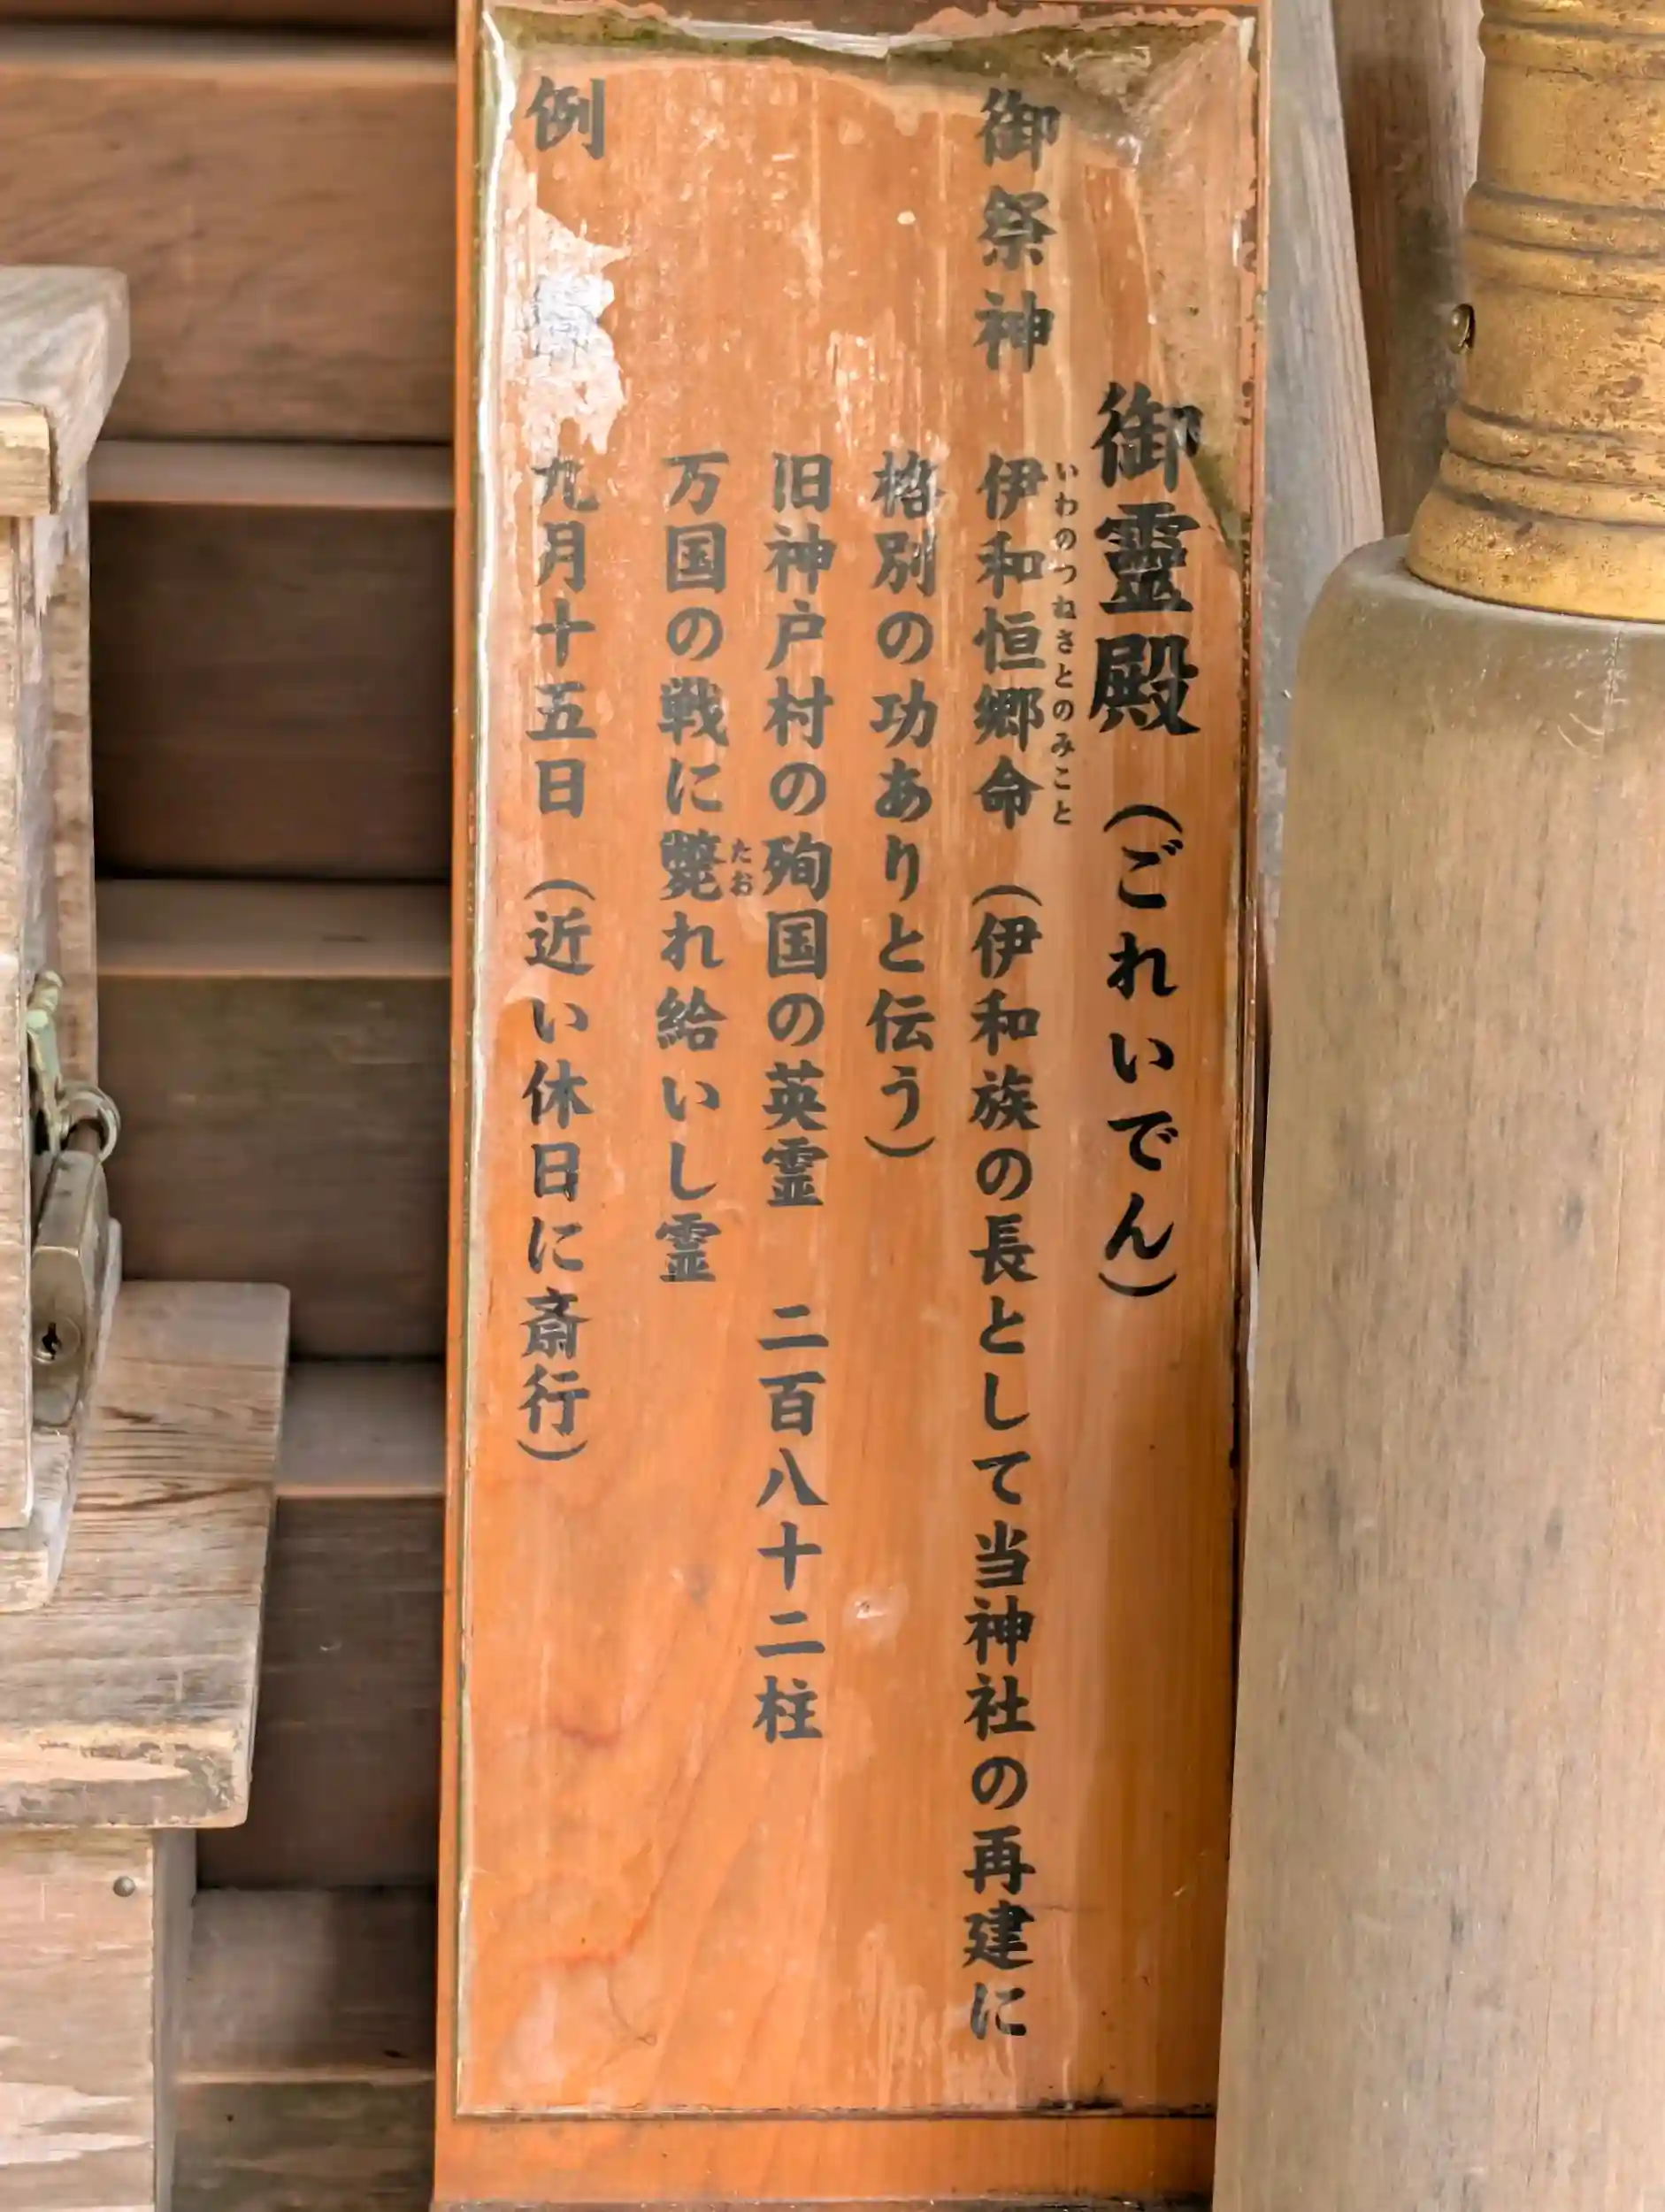 御靈殿（ごれいでん）
御祭神 伊和恒郷命（伊和族の長として当神社の再建に
いわのつねさとのみこと
格別の功ありと伝う）
旧神戸村の殉国の英霊 二百八十二柱
万国の戦に斃れ給いし霊
たお
例 九月十五日（近い休日に斎行）